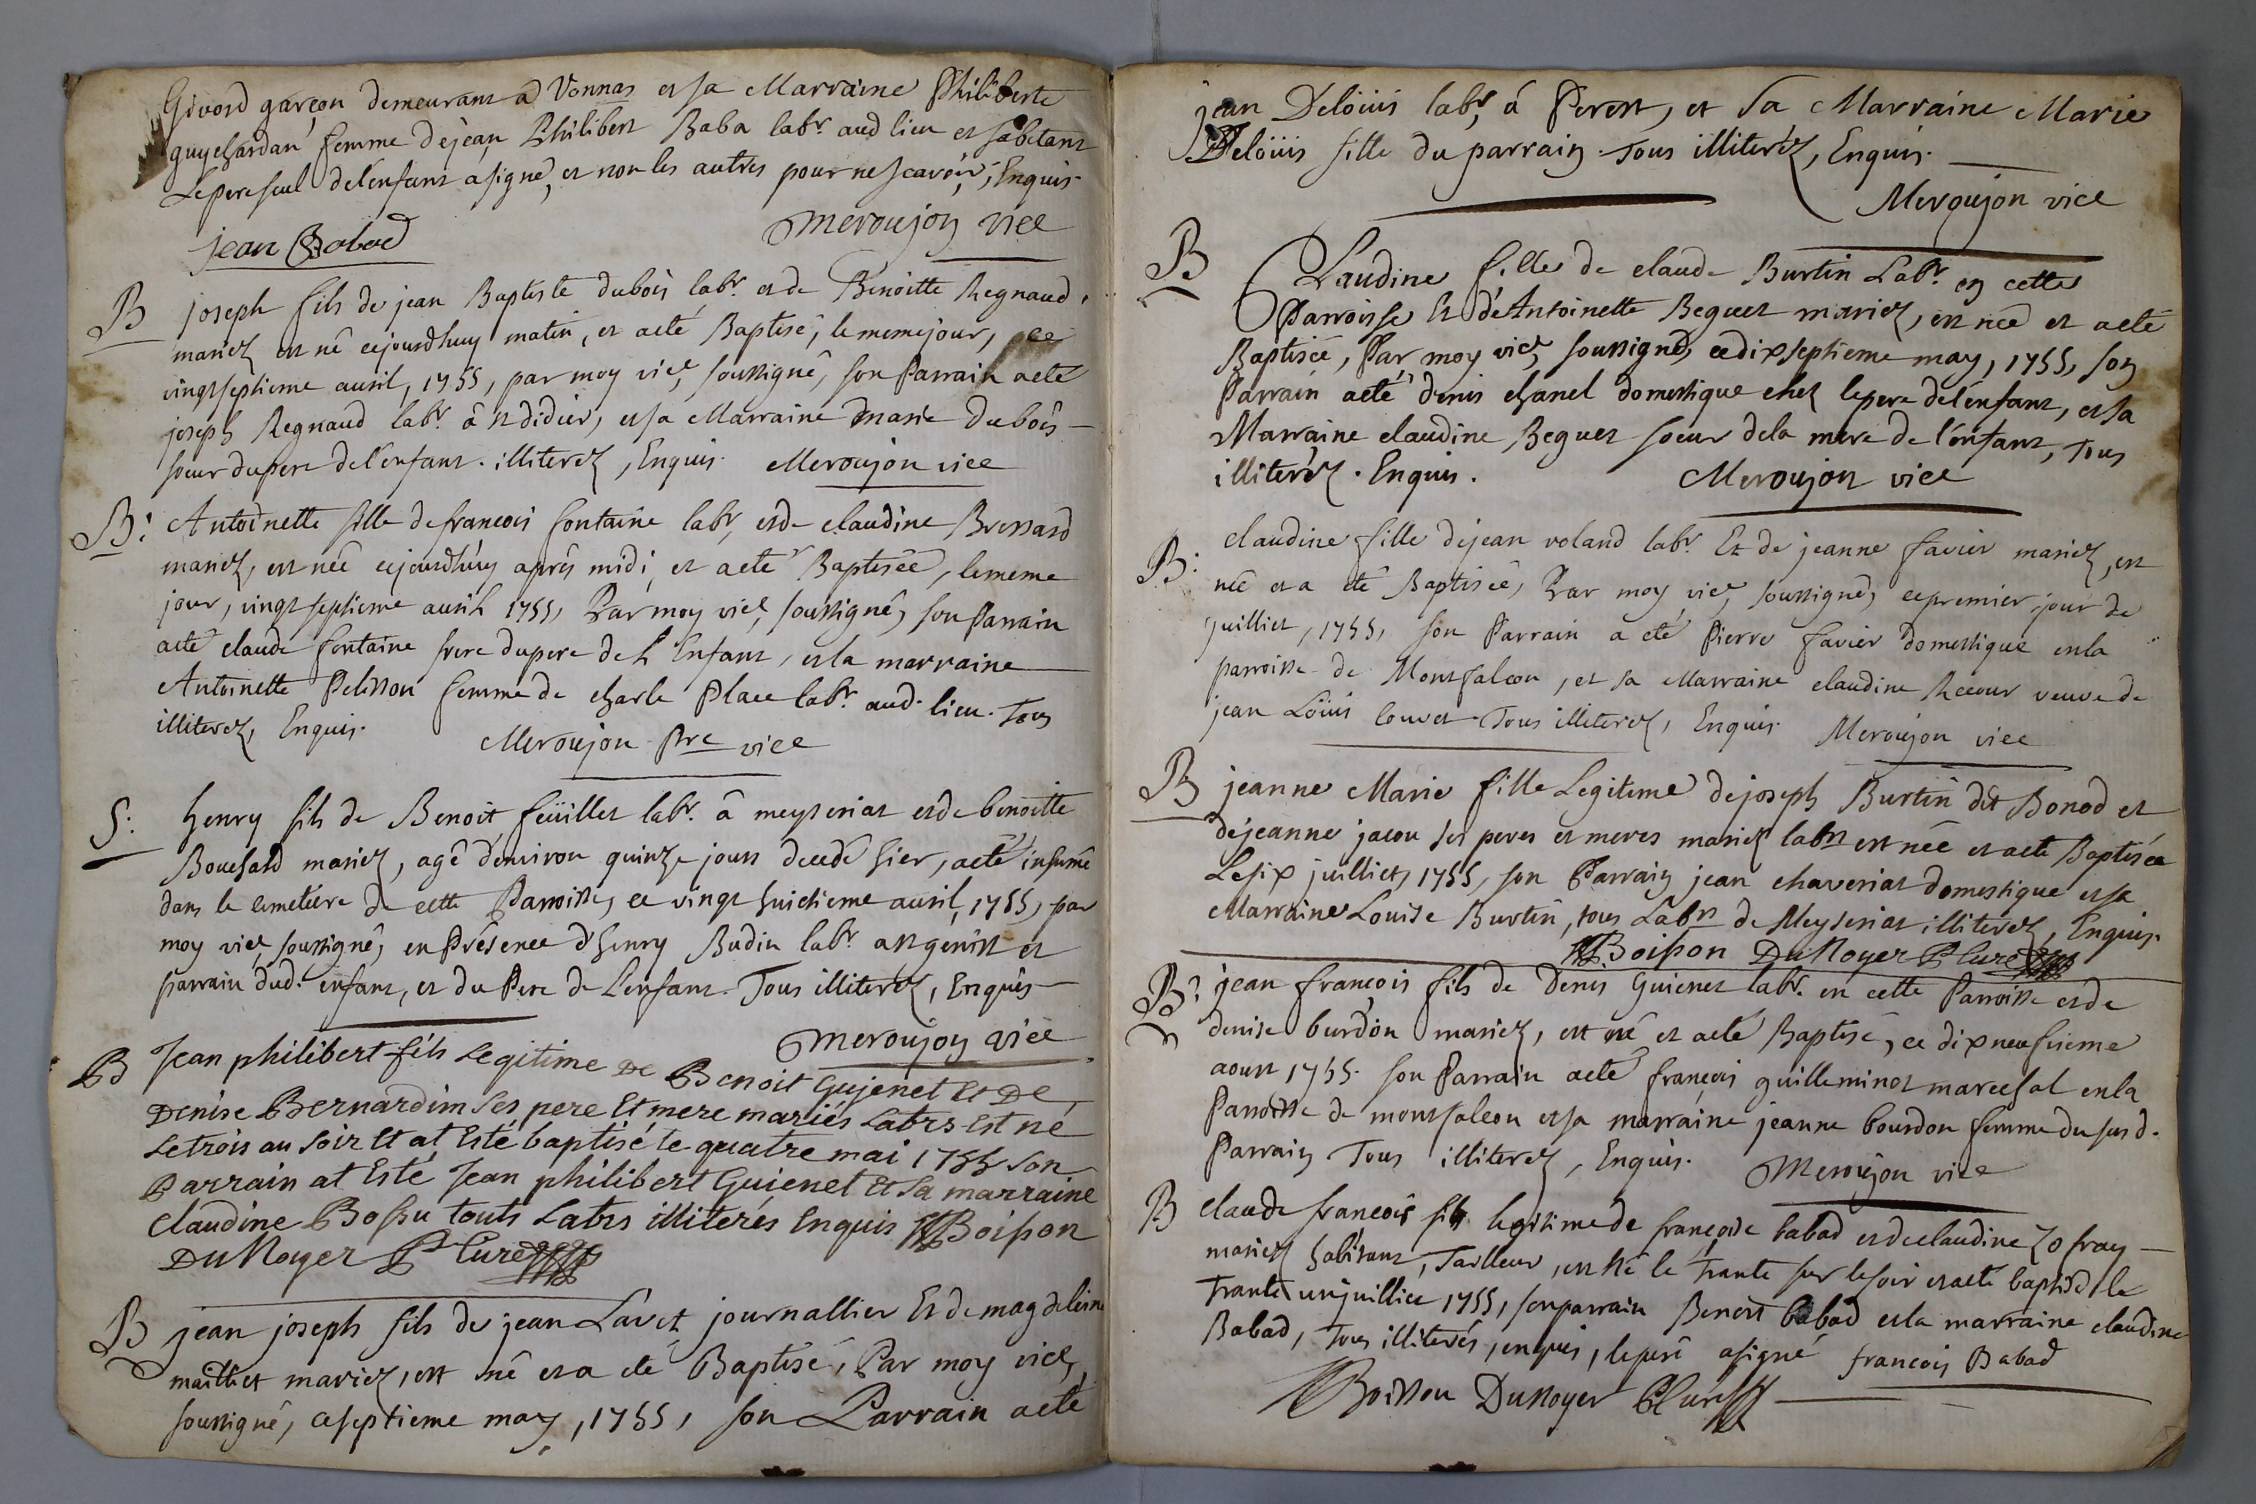 Givord garçon demeurant a Vonnas et sa Marraine Philiberte
guychardan femme de jean Philibert Baba labr. aud lieu et habitant
Le pere seul de l'enfant a signé, et non les autres pour ne scavoir, Enquis.
jean Babad Meroujon vice
B joseph fils de jean Baptiste dubois labr. et de Benoitte Regnaud,
mariez est né cejourdhuy matin, et a eté Baptisé, le meme jour, ce
vingt septieme auril, 1755, par moy vice, soussigné, son Parrain a eté
joseph Regnaud labr. à st didier, et sa Marraine marie dubois
soeur du pere de l'enfant. illiterez, Enquis. Meroujon vice
B: Antoinette fille de francois fontaine labr, et de claudine Bressard
mariez, est née cejourdhuy aprés midi, et a eté Baptisée, le meme
jour, vingt septieme auril 1755, Par moy vice, soussigné, son Parrain
a eté claude fontaine frere du pere de L'Enfant, et la marraine
Antoinette Pelisson femme de charle Place labr. aud. lieu. Tous
illiterez, Enquis. Meroujon Pre vice
S: henry fils de Benoit feüillet labr. à meyseriat et de benoitte
Bouchard mariez, agé d'environ quinze jours decedé hier, a eté inhumé
dans le cemetiere de cette Parroisse, ce vingt huictieme auril, 1755, par
moy vice, soussigné, en Présence d'henry Budin labr. a st genist et
parrain dud. enfant, et du Pere de L'enfant. Tous illiterez, Enquis
Meroujon vice
B Jean philibert fils Legitime De Benoit Gujenet Et De
Denise Bernardim ses pere Et mere mariés Labrs Est né
Le trois au soir Et at Esté baptisé le quatre mai 1755 son
Parrain at Esté Jean philibert Guienet Et sa marraine
Claudine Bossu touts Labrs illiterés Enquis Boisson
DuNoyer P Curé
B jean joseph fils de jean Lavet journallier Et de magdeleine
maillet mariez, est né et a eté Baptisé, Par moy vice,
soussigné, ce septieme may, 1755, son Parrain a eté
jean Delöuis labr, à Perest, et sa Marraine Marie
Delöuis fille du parrain. Tous illiterez, Enquis.
Meroujon vice
B Claudine fille de claude Burtin Labr. en cette
Parroisse Et d'Antoinette Beguet mariez, est née et a eté
Baptisée, Par moy vice, soussigné, ce dix septieme may, 1755, son
Parrain a eté denis chanel domestique chez le pere de l'enfant, et sa
Marraine claudine Beguet soeur de la mere de l'enfant, Tous
illiterez. Enquis. Meroujon vice
B: claudine fille de jean voland labr. Et de jeanne favier mariez, est
née et a eté Baptisée, Par moy vice, soussigné, ce premier jour de
juilliet, 1755, son Parrain a eté Pierre favier domestique en la
parroisse de Montfalcon, et sa Marraine claudine Recour veuve de
jean Löüis louvet. Tous illiterez, Enquis. Meroujon vice
B jeanne Marie fille Legiteme de joseph Burtin dit Bonod et
de jeanne jacou ses peres et meres mariez labrs est née et a eté Baptisée
Le six juilliet, 1755, son Parrain jean chaveriat domestique et sa
Marraine Louise Burtin, tous Labrs de Meyseriat illiterez, Enquis.
Boisson DuNoyer P Curé
B: jean françois fils de Denis Guienet labr. en cette Parroisse et de
denise burdon mariez, est né et a eté Baptisé, ce dix neufvieme
aoust 1755. son Parrain a eté françois guilleminot marechal en la
Parroisse de montfalcon et sa marraine jeanne bourdon femme du susd.
Parrain Tous illiterez, Enquis. Meroujon vice
B claude françois fils legitime de françois babad et de claudine
mariez habitant, Tailleur, est né le trante sur le soir et a eté baptisé le
trante un juilliet 1755, son parrain Benoit babad et la marraine claudine
Babad, Tous illiterés, enquis, le peré a signé francois Babad
Boisson DuNoyer P Curé